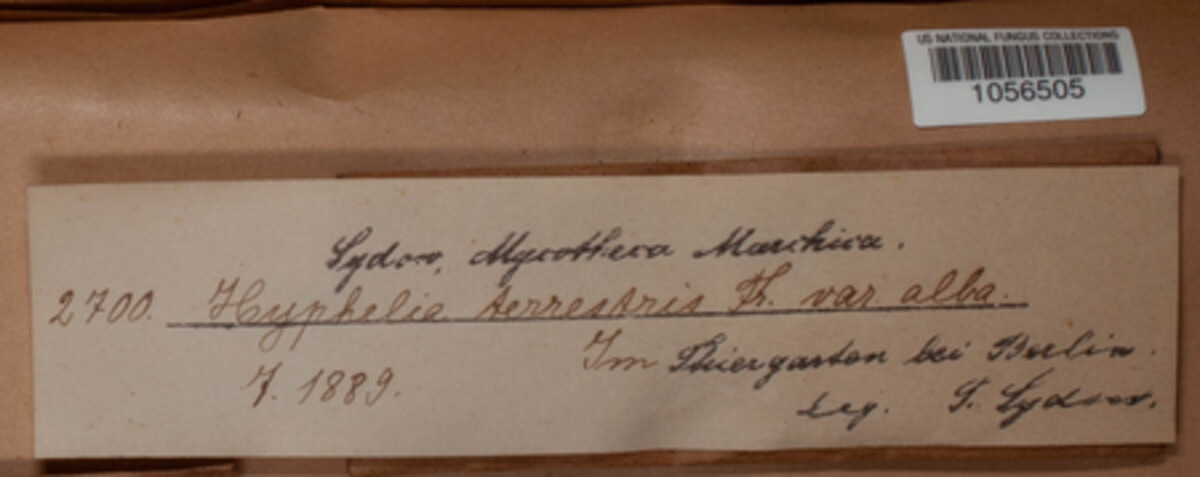 US NATIONAL FUNGUS COLLECTIONS
1056505
Sydow, Mycotheca Marchica.
2700. Hyphelia terrestris Fr. var alba.
7. 1889. Im Thiergarten bei Berlin.
Leg. P. Sydow.